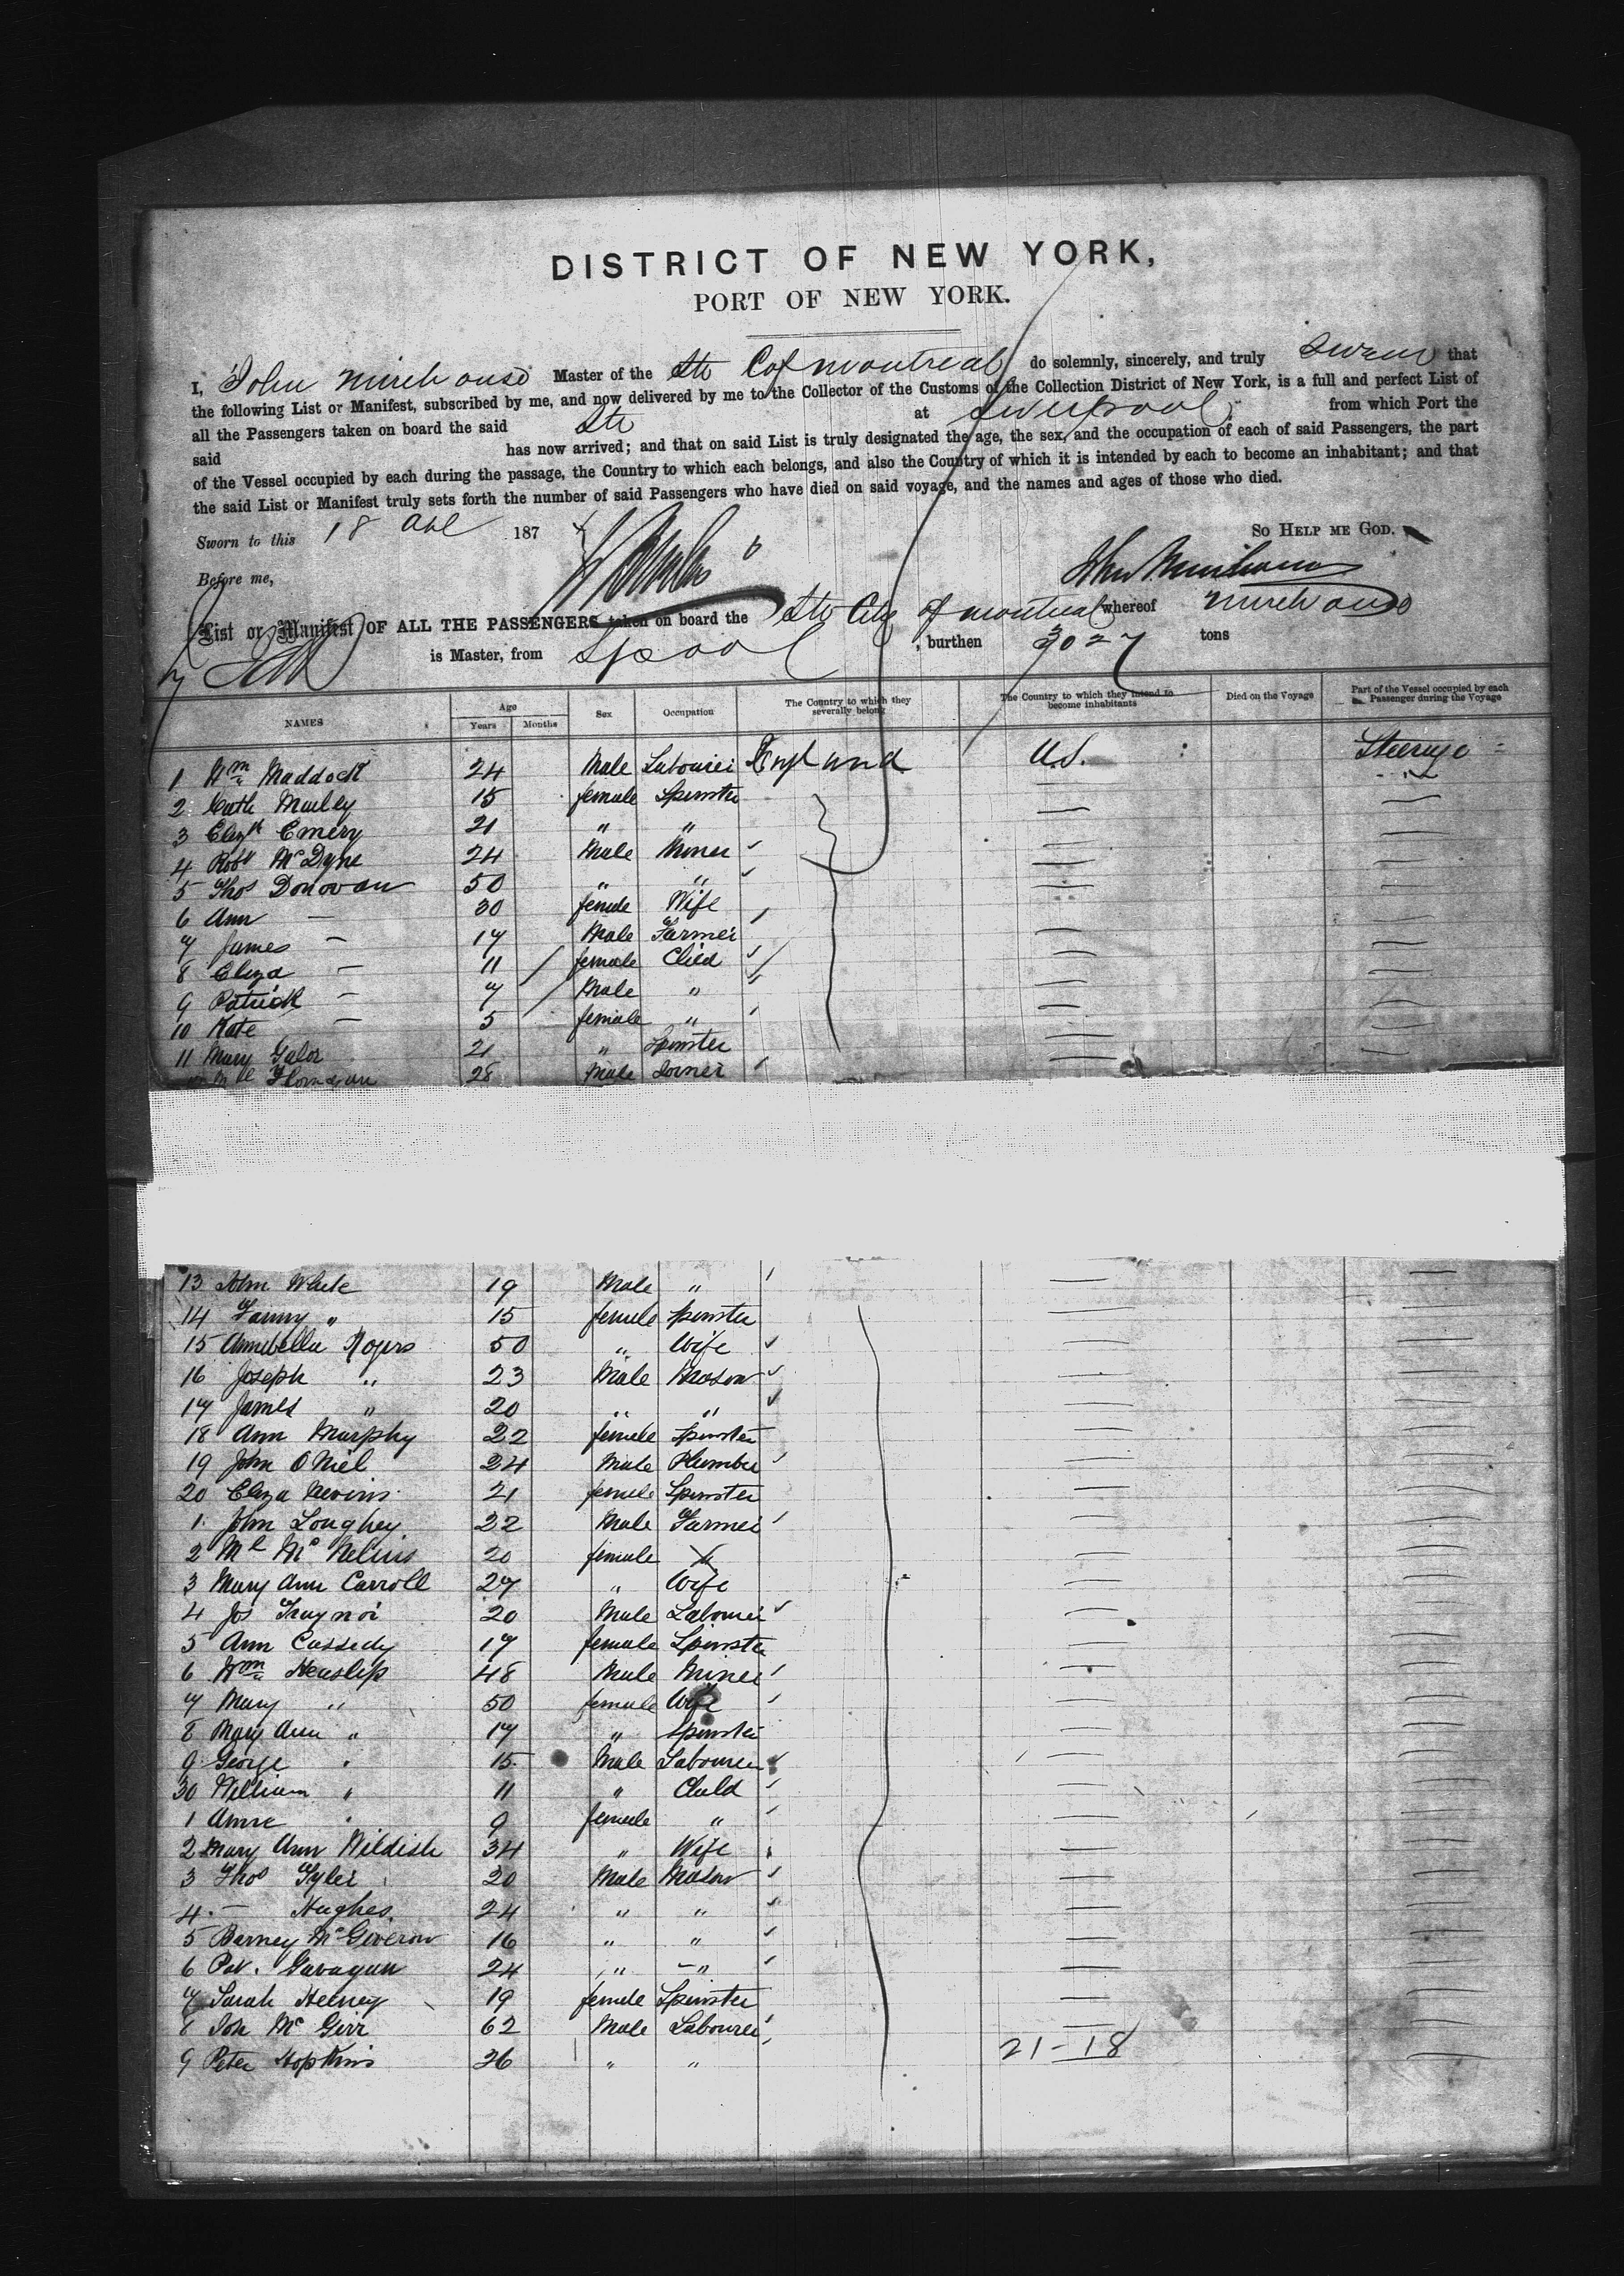 DISTRICT OF NEW YORK,
PORT OF NEW YORK.
I, John Mirehouse Master of the Str C of Montreal do solemnly, sincerely, and truly swear that
the following List or Manifest, subscribed by me, and now delivered by me to the Collector of the Customs of the Collection District of New York, is a full and perfect List of
all the Passengers taken on board the said Str at Liverpool from which Port the
said has now arrived; and that on said List is truly designated the age, the sex, and the occupation of each of said Passengers, the part
of the Vessel occupied by each during the passage, the Country to which each belongs, and also the Country of which it is intended by each to become an inhabitant; and that
the said List or Manifest truly sets forth the number of said Passengers who have died on said voyage, and the names and ages of those who died.
Sworn to this 18 Apl 187
SO HELP ME GOD.
Before me,
John Mirehouse
List or Manifest OF ALL THE PASSENGERS taken on board the Str City of Montreal whereof Mirehouse
is Master, from Lpool , burthen 3027 tons
NAMES Age Years Months Sex Occupation The Country to which they severally belong The Country to which they intend to become inhabitants Died on the Voyage Part of the Vessel occupied by each Passenger during the Voyage
1 Wm Maddock 24 Male Labourer England U.S. Steerage
2 Cath Marley 15 female Spinster
3 Elizth Emery 21 " "
4 Robt McDyne 24 Male Miner
5 Thos Donovan 50 " "
6 Ann — 30 female Wife
7 James — 17 Male Farmer
8 Eliza — 11 female Child
9 Patrick — 7 Male "
10 Kate — 5 female "
11 Mary Galor 21 " Spinster
28 Male
13 John White 19 Male "
14 Fanny " 15 female Spinster
15 Annabella Rogers 50 " Wife
16 Joseph " 23 Male Mason
17 James " 20 " "
18 Ann Murphy 22 female Spinster
19 John O Niel 24 Male Plumber
20 Eliza Nevins 21 female Spinster
1 John Loughey 22 Male Farmer
2 Ml McNelius 20 female
3 Mary Ann Carroll 27 " Wife
4 Jos Traynor 20 Male Labourer
5 Ann Cassedy 17 female Spinster
6 Wm Heaslip 48 Male Miner
7 Mary " 50 female Wife
8 Mary Ann " 17 " Spinster
9 George " 15 Male Labourer
30 William " 11 " Child
1 Anne " 9 female "
2 Mary Ann Wildish 34 " Wife
3 Thos Tyler 20 Male Mason
4 — Hughes 24 " "
5 Barney McGiveron 16 " "
6 Pat. Gavagan 24 " "
7 Sarah Heeney 19 female Spinster
8 Jon McGirr 62 Male Labourer
9 Peter Hopkins 26 " "
21-18